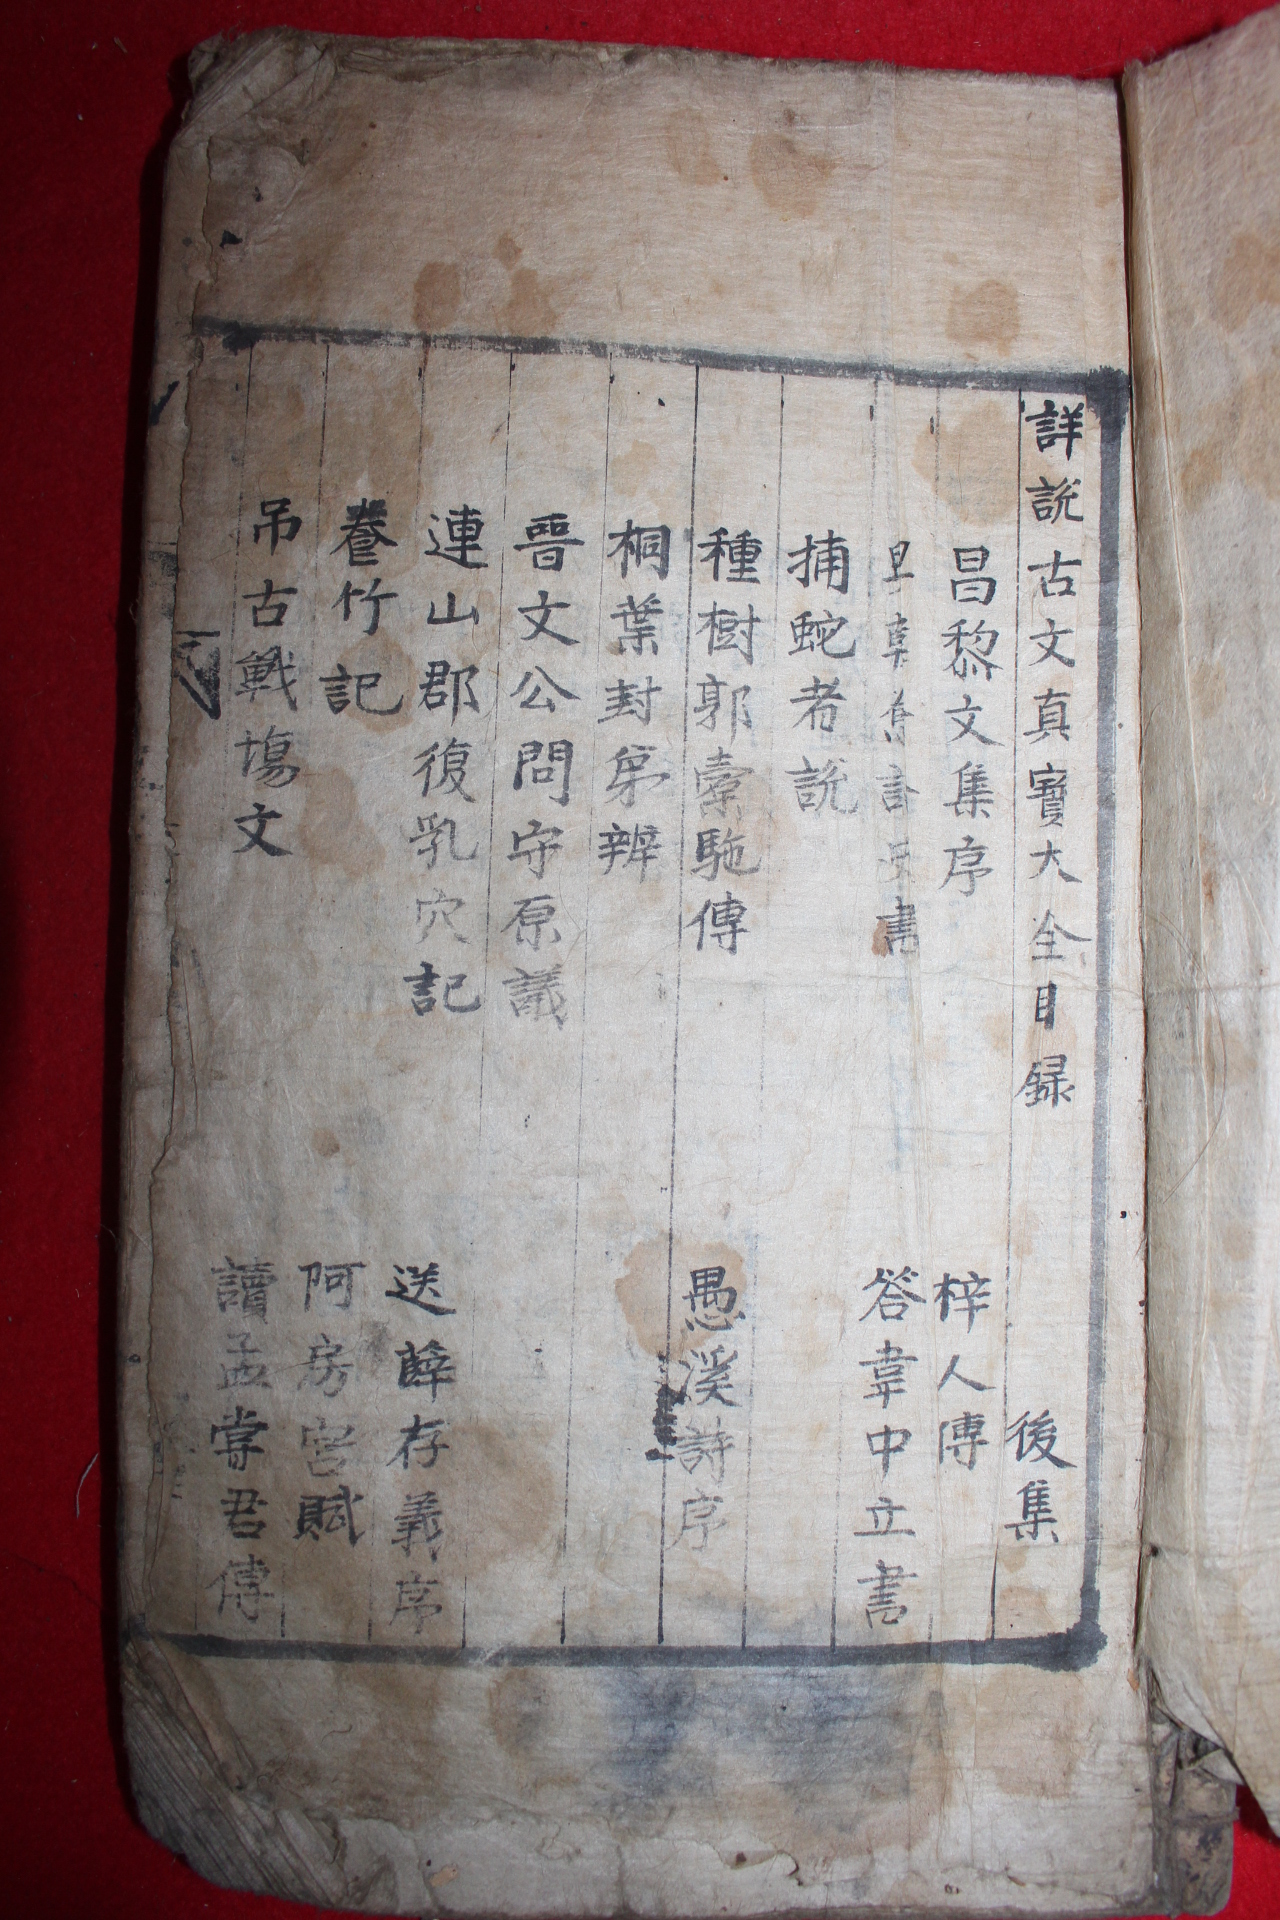 詳説古文真寶大全目録 後集
昌黎文集序 梓人傳
與韋 書 答韋中立書
捕蛇者説
種樹郭橐駞傳 愚溪詩序
桐葉封弟辨
晉文公問守原議
連山郡復乳穴記 送薛存義序
養竹記 阿房宮賦
吊古戰場文 讀孟嘗君傳